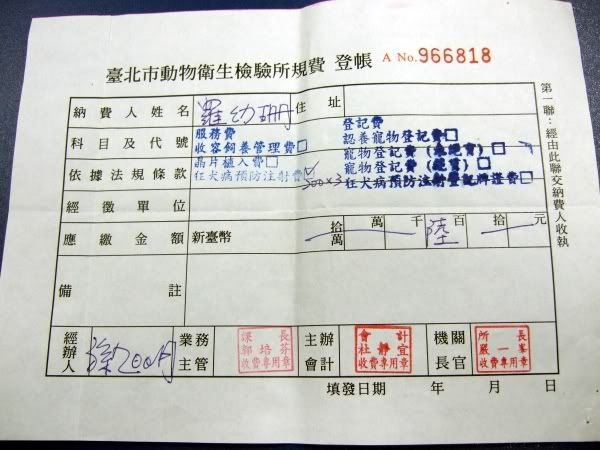 臺北市動物衛生檢驗所規費 登帳 A No.966818
納費人姓名 羅幼珊 住址
科目及代號
依據法規條款
服務費
收容飼養管理費□
晶片植入費□
狂犬病預防注射費☑ 200×3
登記費
認養寵物登記費□
寵物登記費(未絕育)□
寵物登記費(絕育)□
狂犬病預防注射登記牌證費□
經徵單位
應繳金額 新臺幣 拾萬 萬 千 陸 百 拾 元
備註
經辦人
業務主管 課長 郭培芬 收費專用章
主辦會計 會計 杜靜宜 收費專用章
機關長官 所長 嚴一峯 收費專用章
填發日期 年 月 日
第一聯：經由此聯交納費人收執